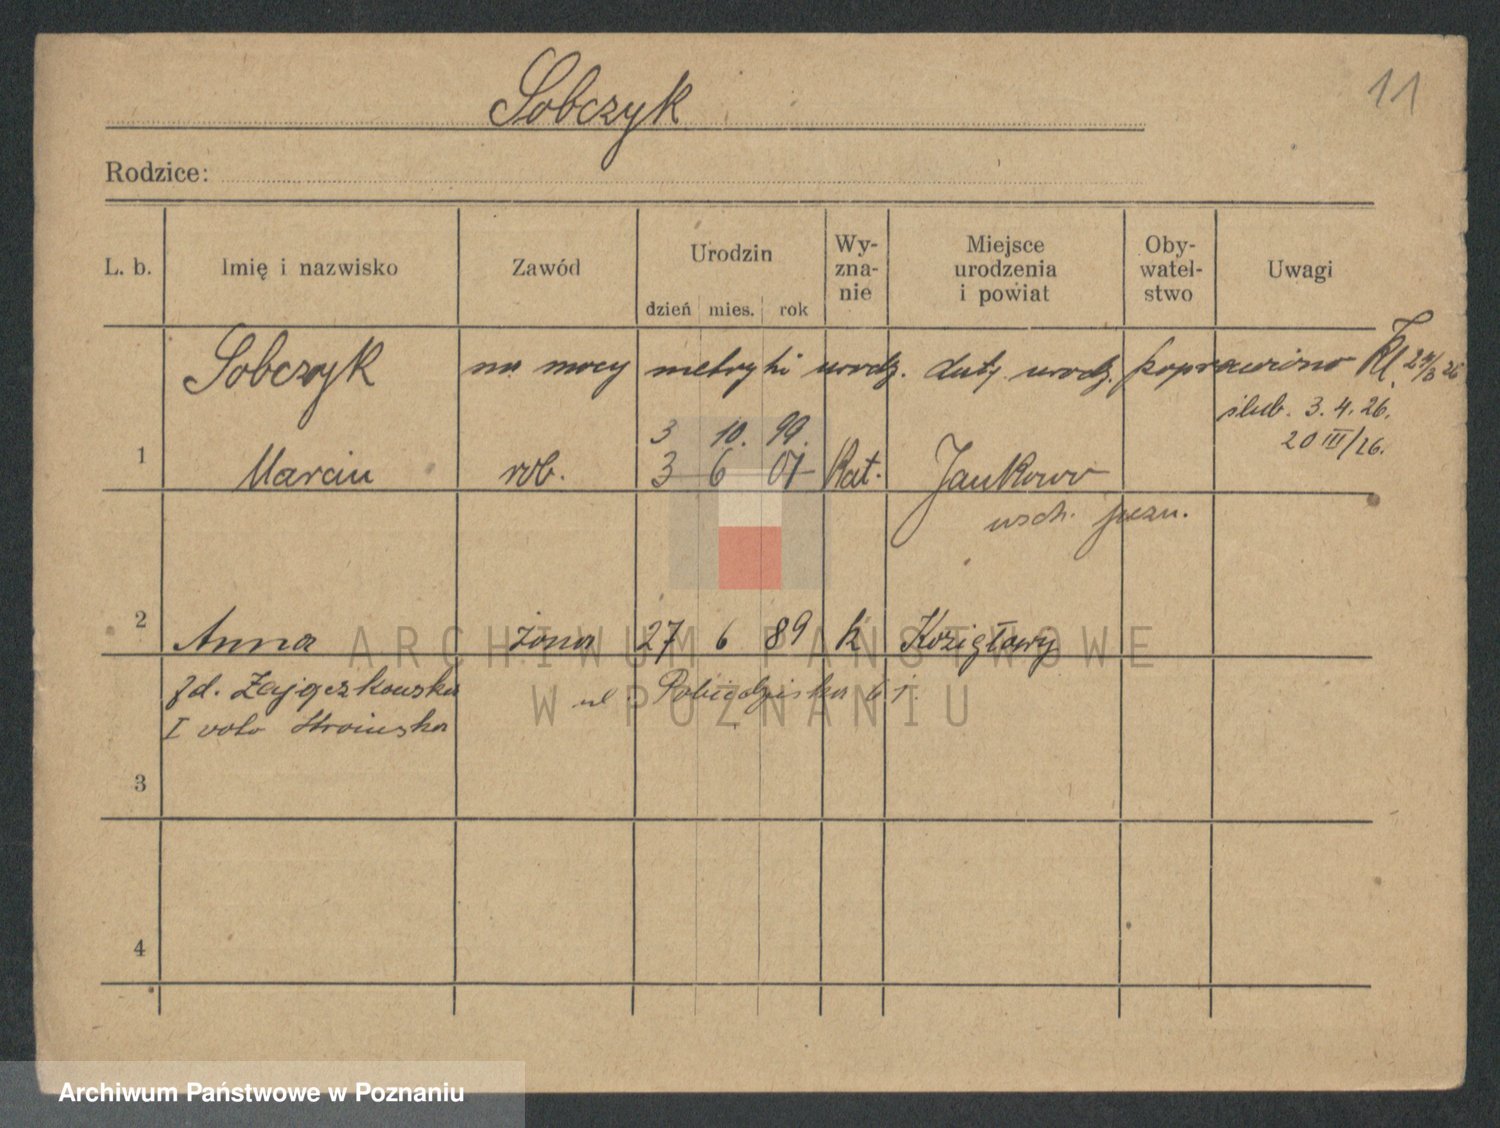 11
Sobczyk
Rodzice:
L. b. Imię i nazwisko Zawód Urodzin dzień mies. rok Wy-zna-nie Miejsce urodzenia i powiat Oby-watel-stwo Uwagi
Sobczyk na mocy metryki urodz. daty urodz. poprawiono
ślub. 3. 4. 26.
3 10. 99. 20 III/26.
1 Marcin rob. 3 6 01 Kat. Jankowo
wsch. pozn.
2 Anna żona 27 6 89 k Koziegłowy
zd. Zajączkowska ul. Pobiedziska
I voto
3
4
ARCHIWUM PAŃSTWOWE
W POZNANIU
Archiwum Państwowe w Poznaniu